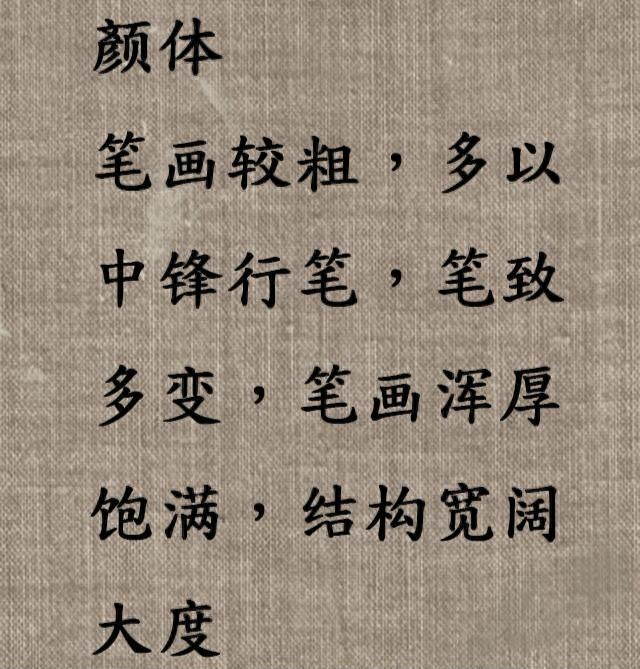 颜体
笔画较粗，多以
中锋行笔，笔致
多变，笔画浑厚
饱满，结构宽阔
大度